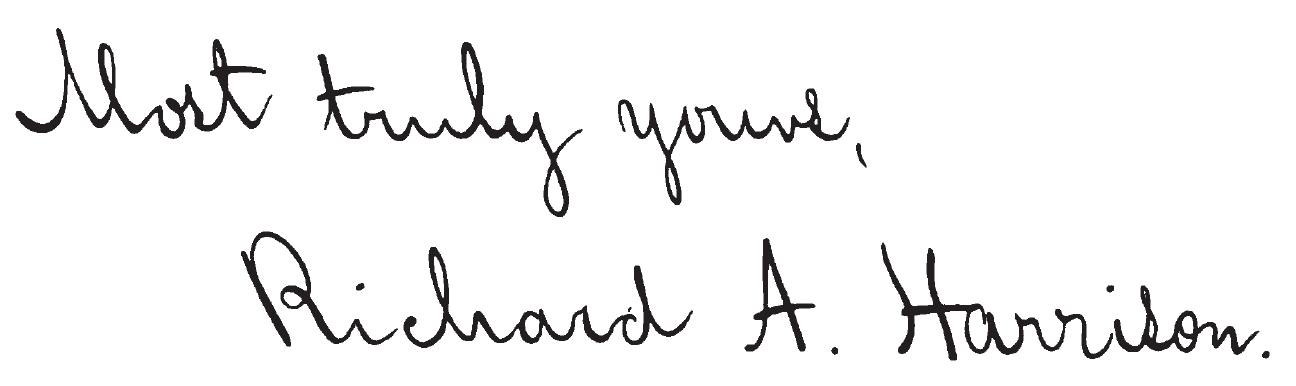 Most truly yours,
Richard A. Harrison.